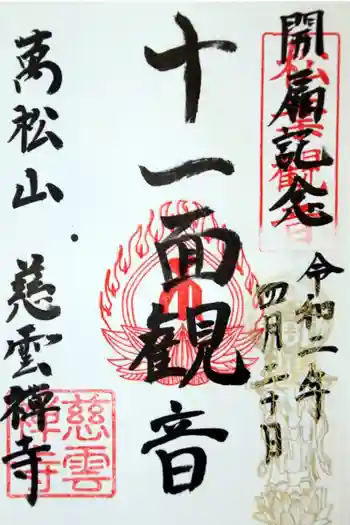 開扇記念
令和二年
四月二十日
十一面観音
萬松山・慈雲禅寺
慈雲
禅寺